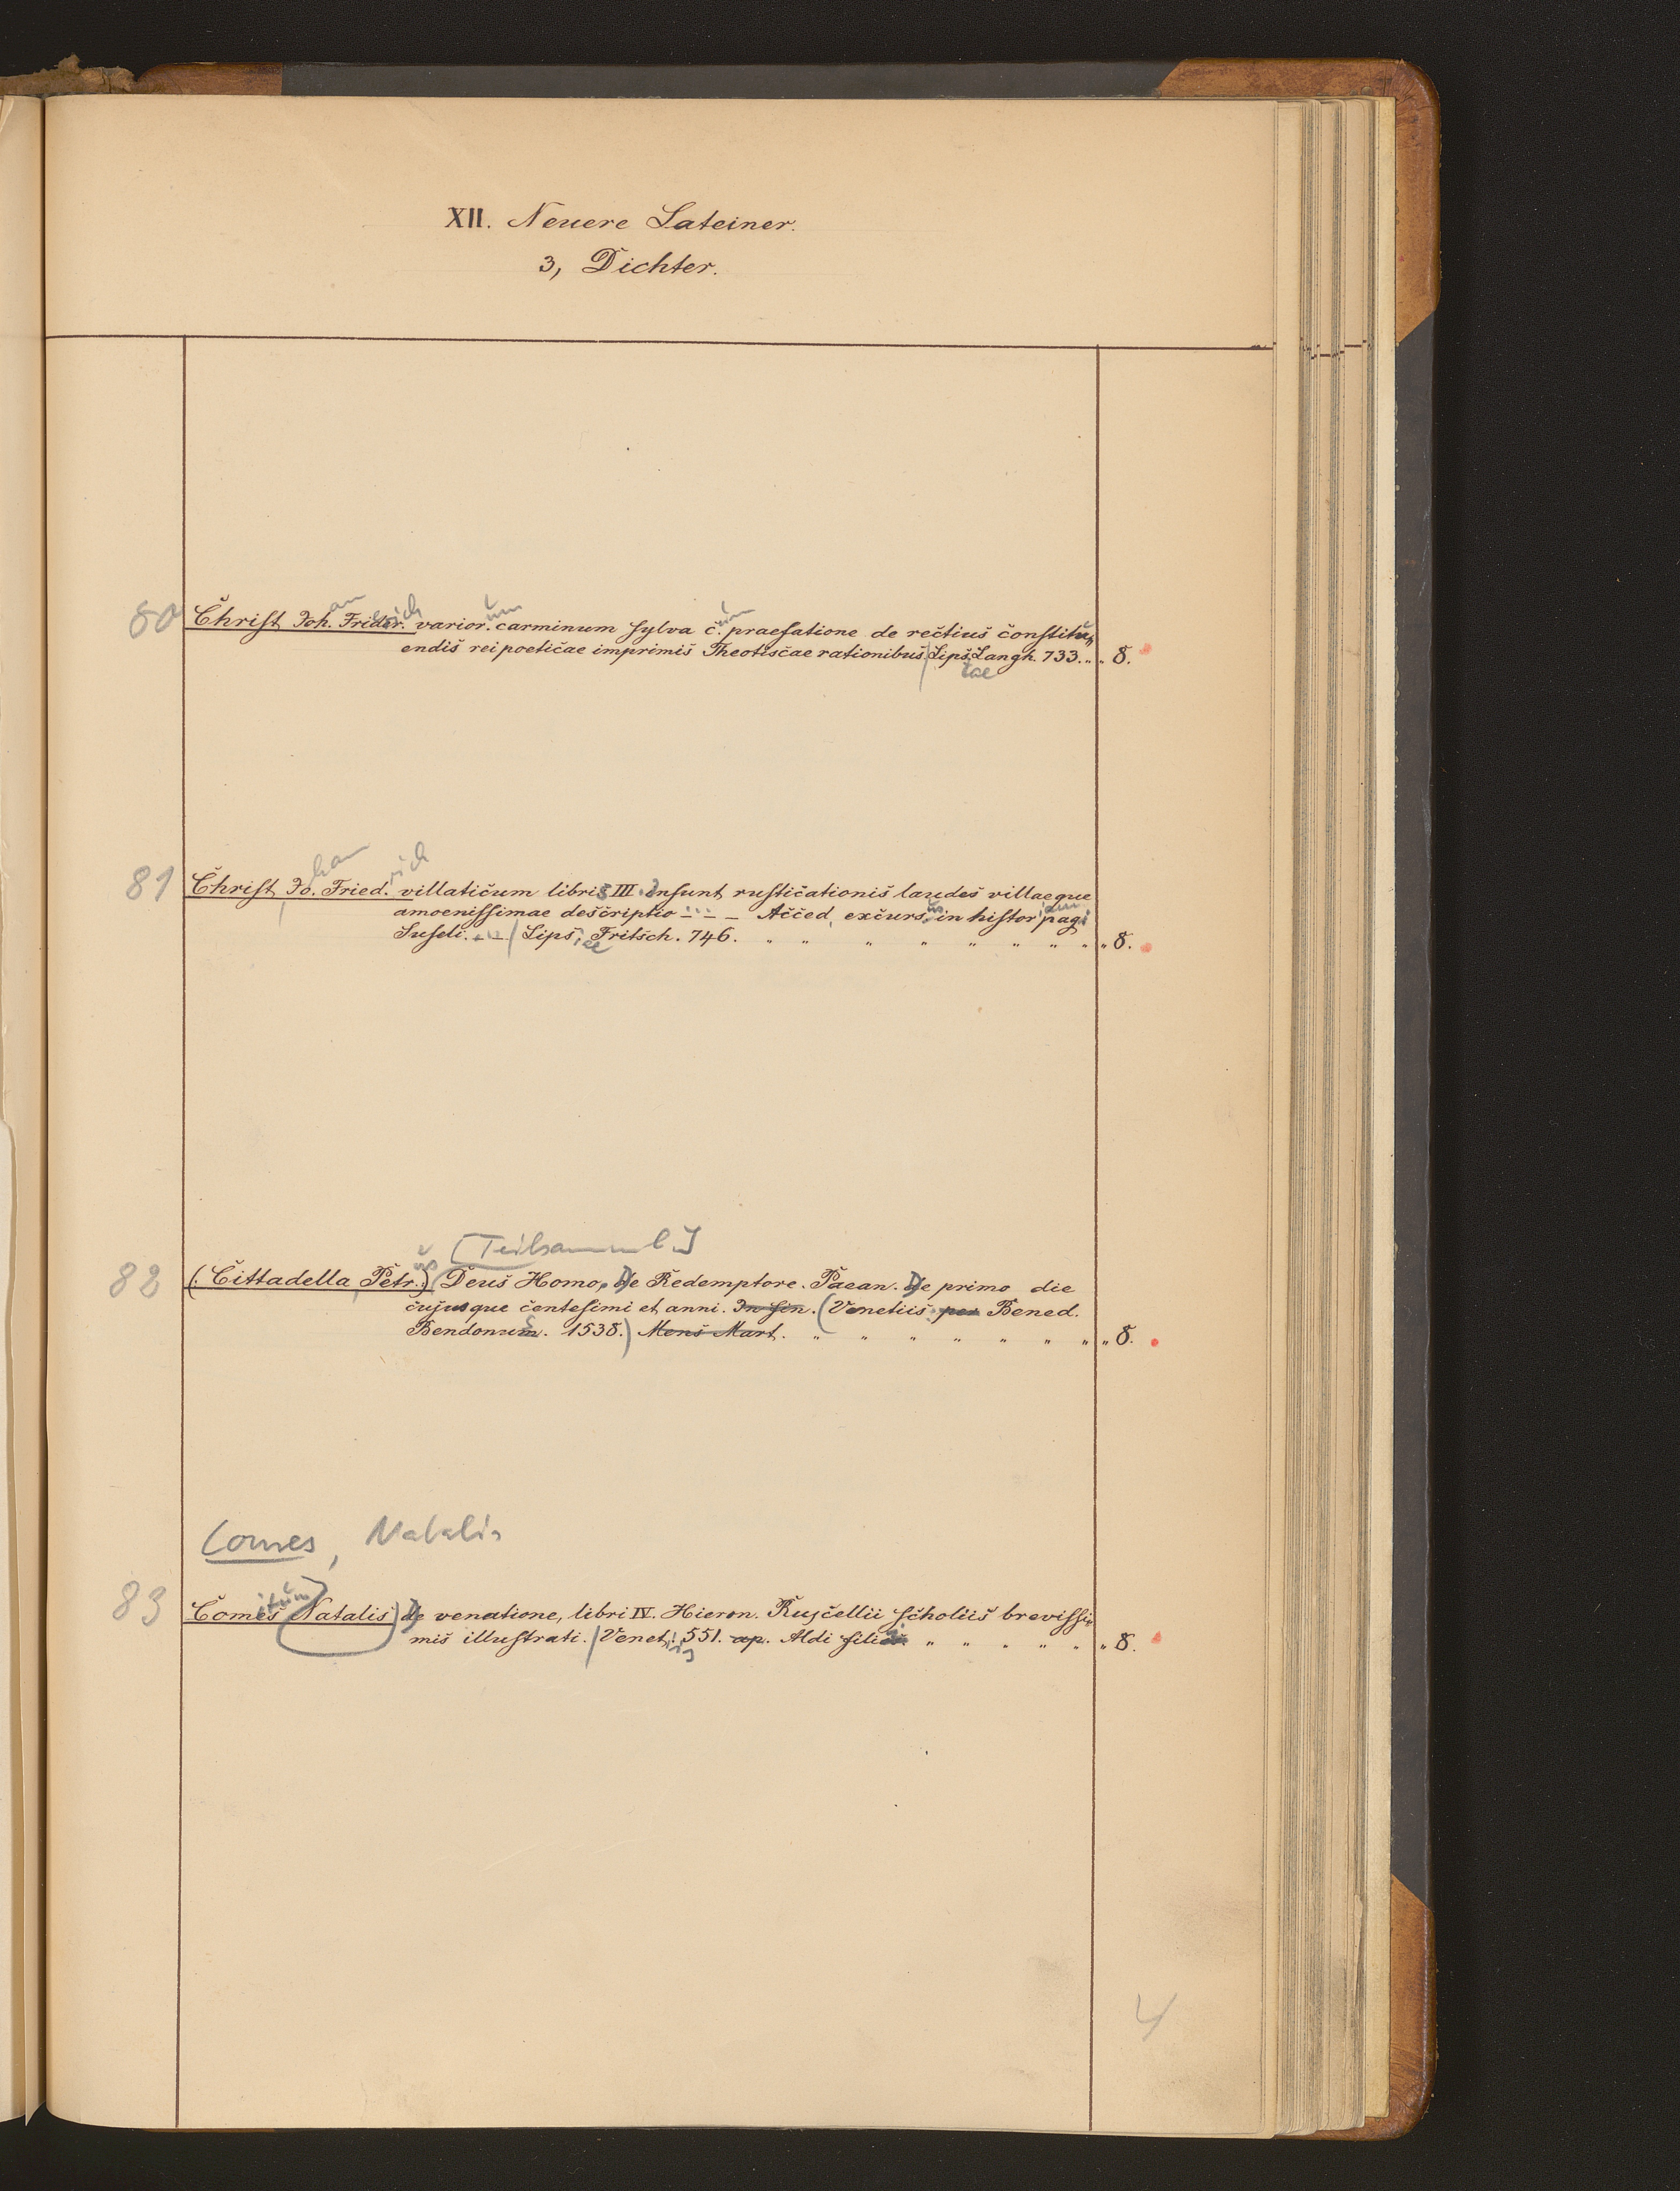 XII. Neuere Lateiner.
3, Dichter.
80 Christ Joh. Frider. varior. carminum sylva c. praefatione de rectius constitu-
endis rei poeticae imprimis Theotiscae rationibus. Lips. Langh. 733. „ „ 8.
81 Christ Jo. Fried. villaticum libris III. insunt rusticationis laudes villaeque
amoenissimae descriptio - - - Acced. excurs. in histor. pagi
Suseli. - - - Lips. Fritsch. 746. „ „ „ „ „ „ „ „ „ 8.
[Teilsamml.]
82 (Cittadella, Petr.) Deus Homo, De Redemptore. Paean. De primo die
cujusque centesimi et anni. In fin. (Venetiis per Bened.
Bendonum. 1538.) Mens Mart. „ „ „ „ „ „ „ „ 8.
Comes, Natalis
83 Comes Natalis De venatione, libri IV. Hieron. Ruscellii scholiis brevissi-
mis illustrati. Venet. 551. ap. Aldi filios „ „ „ „ „ „ 8.
4